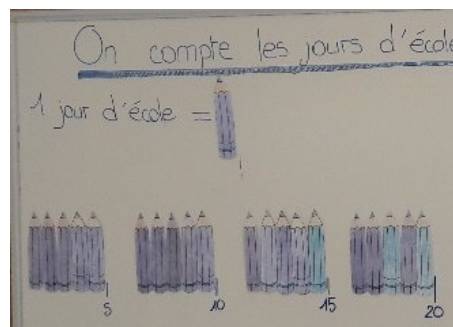 On compte les jours d'école
1 jour d'école =
5 10 15 20